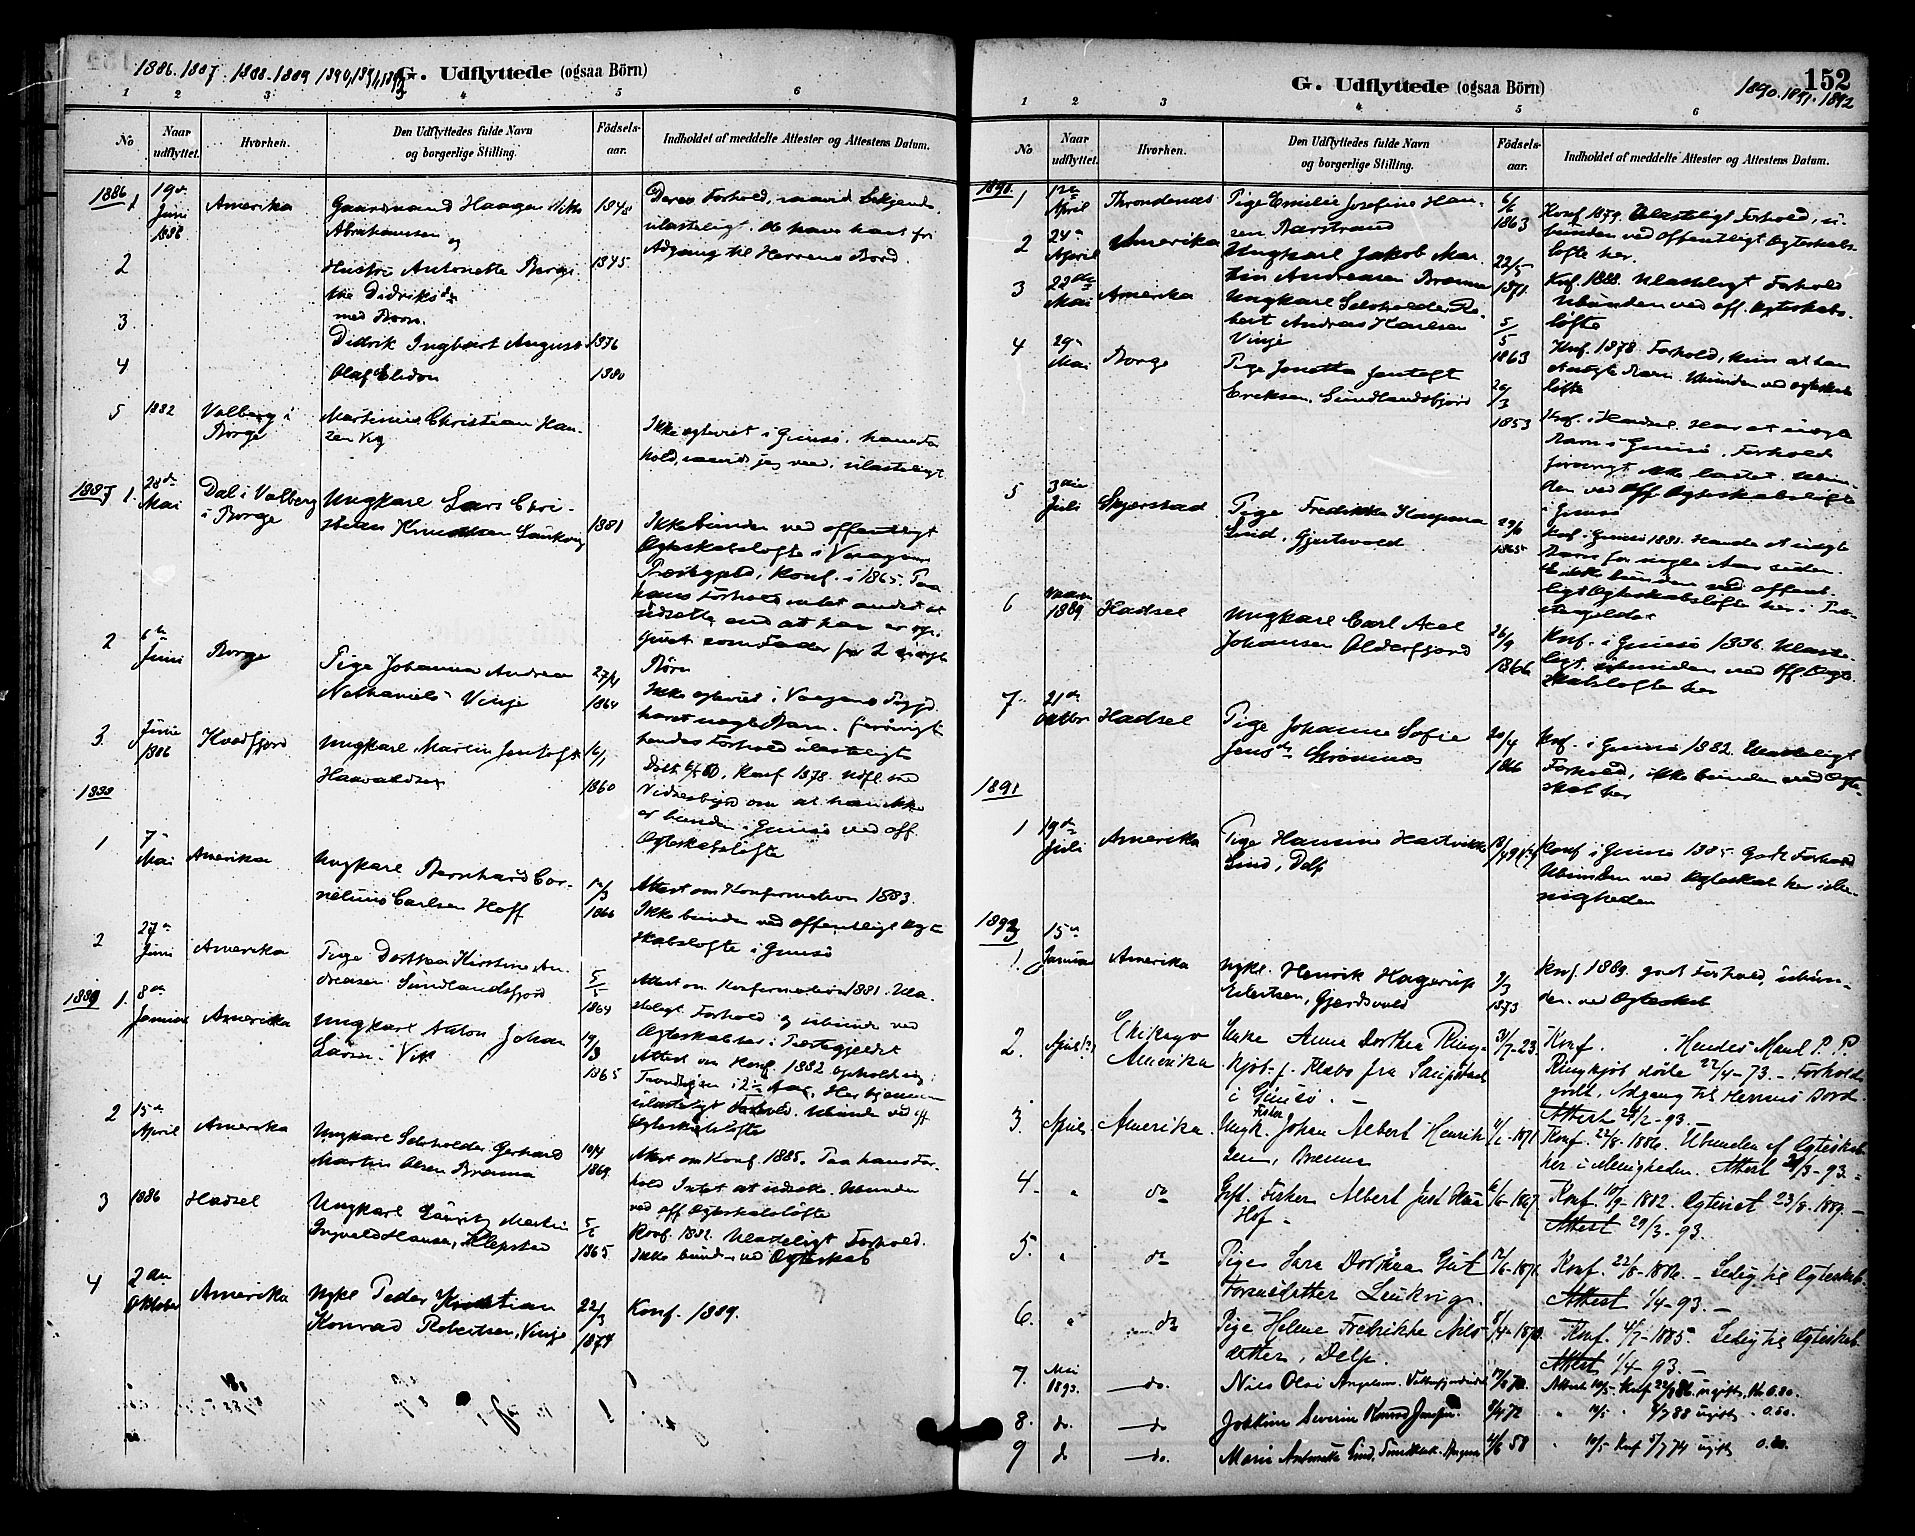 1886. 1887. 1888. 1889 1890, 1891, 1892
G. Udflyttede (ogsaa Börn)
1 2 3 4 5 6
No
Naar udflyttet.
Hvorhen.
Den Udflyttedes fulde Navn
og borgerlige Stilling.
Födsels-
aar.
Indholdet af meddelte Attester og Attestens Datum.
1886 1 19de Juni 1886 Amerika
Gaardmand Haagen
Abrahamsen og
1848
Deres Forhold, saavid bekjendt,
ulasteligt. De have havt fri
Adgang til Herrens Bord.
2 Hustru Antonette Berge
Didriksdr
med Børn
1845
3 Didrik Ingbart August 1876
4 Olaf Elidon 1880
5 1882 Valberg i
Borge
Martinus Christian Han-
sen Vig
Ikke egteviet i Gimsø. hans For-
hold, saavidt jeg veed, ulasteligt
1887 1. 28de Mai Dal i Valberg
i Borge
Ungkarl Lars Chri-
stian Knudsen Laukvig
1881
Ikke bunden ved offentligt
Egteskabsløfte i Vaagan
Præstegjeld, Konf. i 1865. Paa
hans Forhold intet andet at
udsætte end at han er opgi-
givet som Fader for 2 uægte
Børn
2 6te Juni Borge
Pige Johanna Andrea
Nathaniels Vinje
27/4 1864
Ikke egteviet i Vaagans Bygd.
havt uægte Barn. forøvrigt
hendes Forhold ulasteligt
3. Juni 1886 Kvedfjord
Ungkarl Martin Jentoft
Haavaldsen
16/1 1860
Konf 1878. Udfl. ved
Vidnesbyrd om at han ikke
er bunden i Gimsø ved off.
Egteskabsløfte
1888
1 7de Mai Amerika
Ungkarl Bernhard Cor-
nelius Carlsen Hoff
12/3 1866
Attest om Konfirmation 1883.
Ikke bunden ved offentligt Egte-
skabsløfte i Gimsø
2 27de Juni Amerika
Pige Dorthea Kirstine An-
dreasen Sundlandsfjord
5/5 1864
Attest om Konfirmation 1881. Ula-
steligt Forhold og ubunden ved
Egteskab her i Præstegjeldet
1889 1. 8de Januar Amerika
Ungkarl Anton Johan
Larsen Vik
19/3 1865
Attest om Konf. 1882 opholdt sig i
Trondhjem i 2 Aar. Her hjemme
ulasteligt Forhold. Ubunden ved off.
Egteskabsløfte
2 15de April Amerika
Ungkarl Selvholder Gerhard
Martin Olsen Brenna
10/4 1869
Attest om Konf. 1885. Paa hans For-
hold Intet at udsætte. Ubunden
ved off Egteskabsløfte
3 1886 Hadsel
Ungkarl Lauritz Martin
Ingvald Hansen, Klepstad
5/6 1865
Konf. 1882. Ulasteligt Forhold.
Ikke bunden ved Egteskab
4 2den Oktober Amerika
Ugkl Peder Kristian
Konrad Robertsen, Vinje
22/3 1874
Konf. 1889.
G. Udflyttede (ogsaa Börn)
152
1890. 1891. 1892
1 2 3 4 5 6
No
Naar udflyttet.
Hvorhen.
Den Udflyttedes fulde Navn
og borgerlige Stilling.
Födsels-
aar.
Indholdet af meddelte Attester og Attestens Datum.
1890. 1 12te April Throndenæs
Pige Emilie Josefine Han-
sen Barstrand
6/6 1863
Konf 1879. Ulasteligt Forhold, u-
bunden ved offentligt Egteskabs-
løfte her.
2 24de April Amerika
Ungkarl Jakob Mar-
tin Andreasen Brenna
22/5 1871
Knf. 1888. Ulasteligt Forhold
Ubunden ved off. Egteskabs-
løfte
3 22de Mai Amerika
Ungkarl Selvholder Ro-
bert Andreas Karlsen
Vinje
5/5 1863
Knf. 1878. Forhold, kun at han
uægte Barn. Ubunden ved egteskabs-
løfte
4 29de Mai Borge
Pige Jonetta Jentoft
Eriksen, Sundlandsfjord
26/3 1853
Knf. i Hadsel. Har et uægte
Barn i Gimsø. Forhold
forøvrigt ikke lastet. Ubun-
den ved off Egteskabsløfte
i Gimsø
5 3die Juli Skjerstad
Pige Fredrikka Kaspara
Lind, Gjertsvold
29/6 1865
Knf. i Gimsø 1881. Havde et uægte
Barn for nogle Aar siden.
Er ikke bunden ved offent-
ligt Egteskabsløfte her i Præ-
stegjeldet
6 Vaaren 1889 Hadsel
Ungkarl Carl Axel
Johansen Olderfjord
26/9 1866
Knf. i Gimsø 1886. Ulaste-
ligt, ubunden ved off Egte-
skabsløfte her
7 21de Oktbr Hadsel
Pige Johanne Sofie
Jensdr Strømnes
20/4 1866
Knf. i Gimsø 1882. Ulasteligt
Forhold, ikke bunden ved Egte-
skab her
1891
1 19de Juli Amerika
Pige Hansine Hartvikke
Lind, Delp
Konf i Gimsø 1885. Godt Forhold
Ubunden ved Egteskab her i Me-
nigheden
1893
1. 15de Januar Amerika
Ugkl. Henrik Hagerup
Eilertsen, Gjerdsvold
2/3 1873
Knf. 1889. godt Forhold, ubun-
den ved Egteskab
2. April Chikago
Amerika
Enke Anna Dorthea Ring-
kjøb f. Klæbo fra Saupstad
i Gimsø.
31/7-23.
Konf . Hendes Mand P. P.
Ringkjøb døde 22/4-73. - Forhold
godt, Adgang til Herrens Bord.
Attest 28/2-93.
3. April Amerika.
Ungk. Fisker Johan Albert Henrik-
sen, Brenna
11/1-1871
Konf. 22/8-1886. Ubunden af Egteskab
her i Menigheden. Attest 28/3-93. -
4. " do
Gift Fisker Albert Just
Hof -
6/6-1867
Konf. 10/9-1882. Egteviet 23/8-1889. -
Attest 29/3-93.
5. " do
Pige Sara Dorthea Gut-
tormsdatter Laukvig.
12/6-1871
Konf. 22/8-1886. - Ledig til Egteskab.
Attest 1/4-93. -
6. " do
Pige Helene Fredrikke Nils-
datter, Delp.
8/4-1870
Konf. 4/7-1885 - Ledig til Egteskab
Attest 1/4-93. -
7. Mai 1893. do.
Nils Olai
Attest 10/5- Konf 22/8 86 ugift, Kr 0.80.
8. do. do
Jokkim Severin Konrad Jensen.
8/4 72
" 10/5 " 8/7 88 ugift, - 0.80.
9 do do.
Marie Antonette Lind,
4/6 58
" 10/5- Knf 5/7 74 ugift, 0.80.